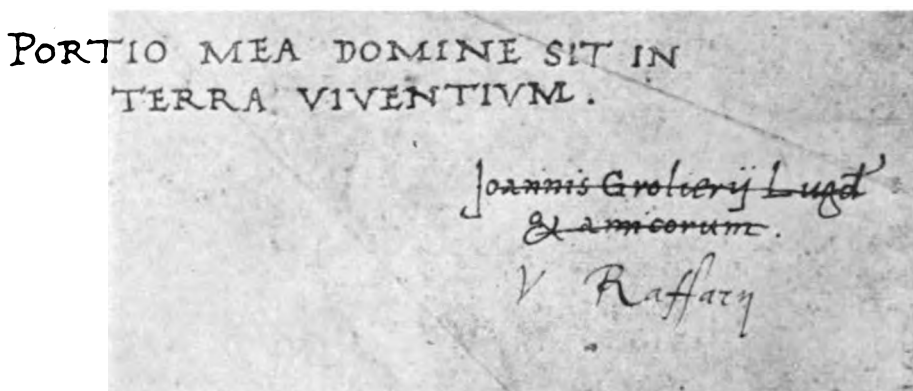 PORTIO MEA DOMINE SIT IN
TERRA VIVENTIVM.
Joannis Grolierij Lugd
& amicorum.
V Raffarij